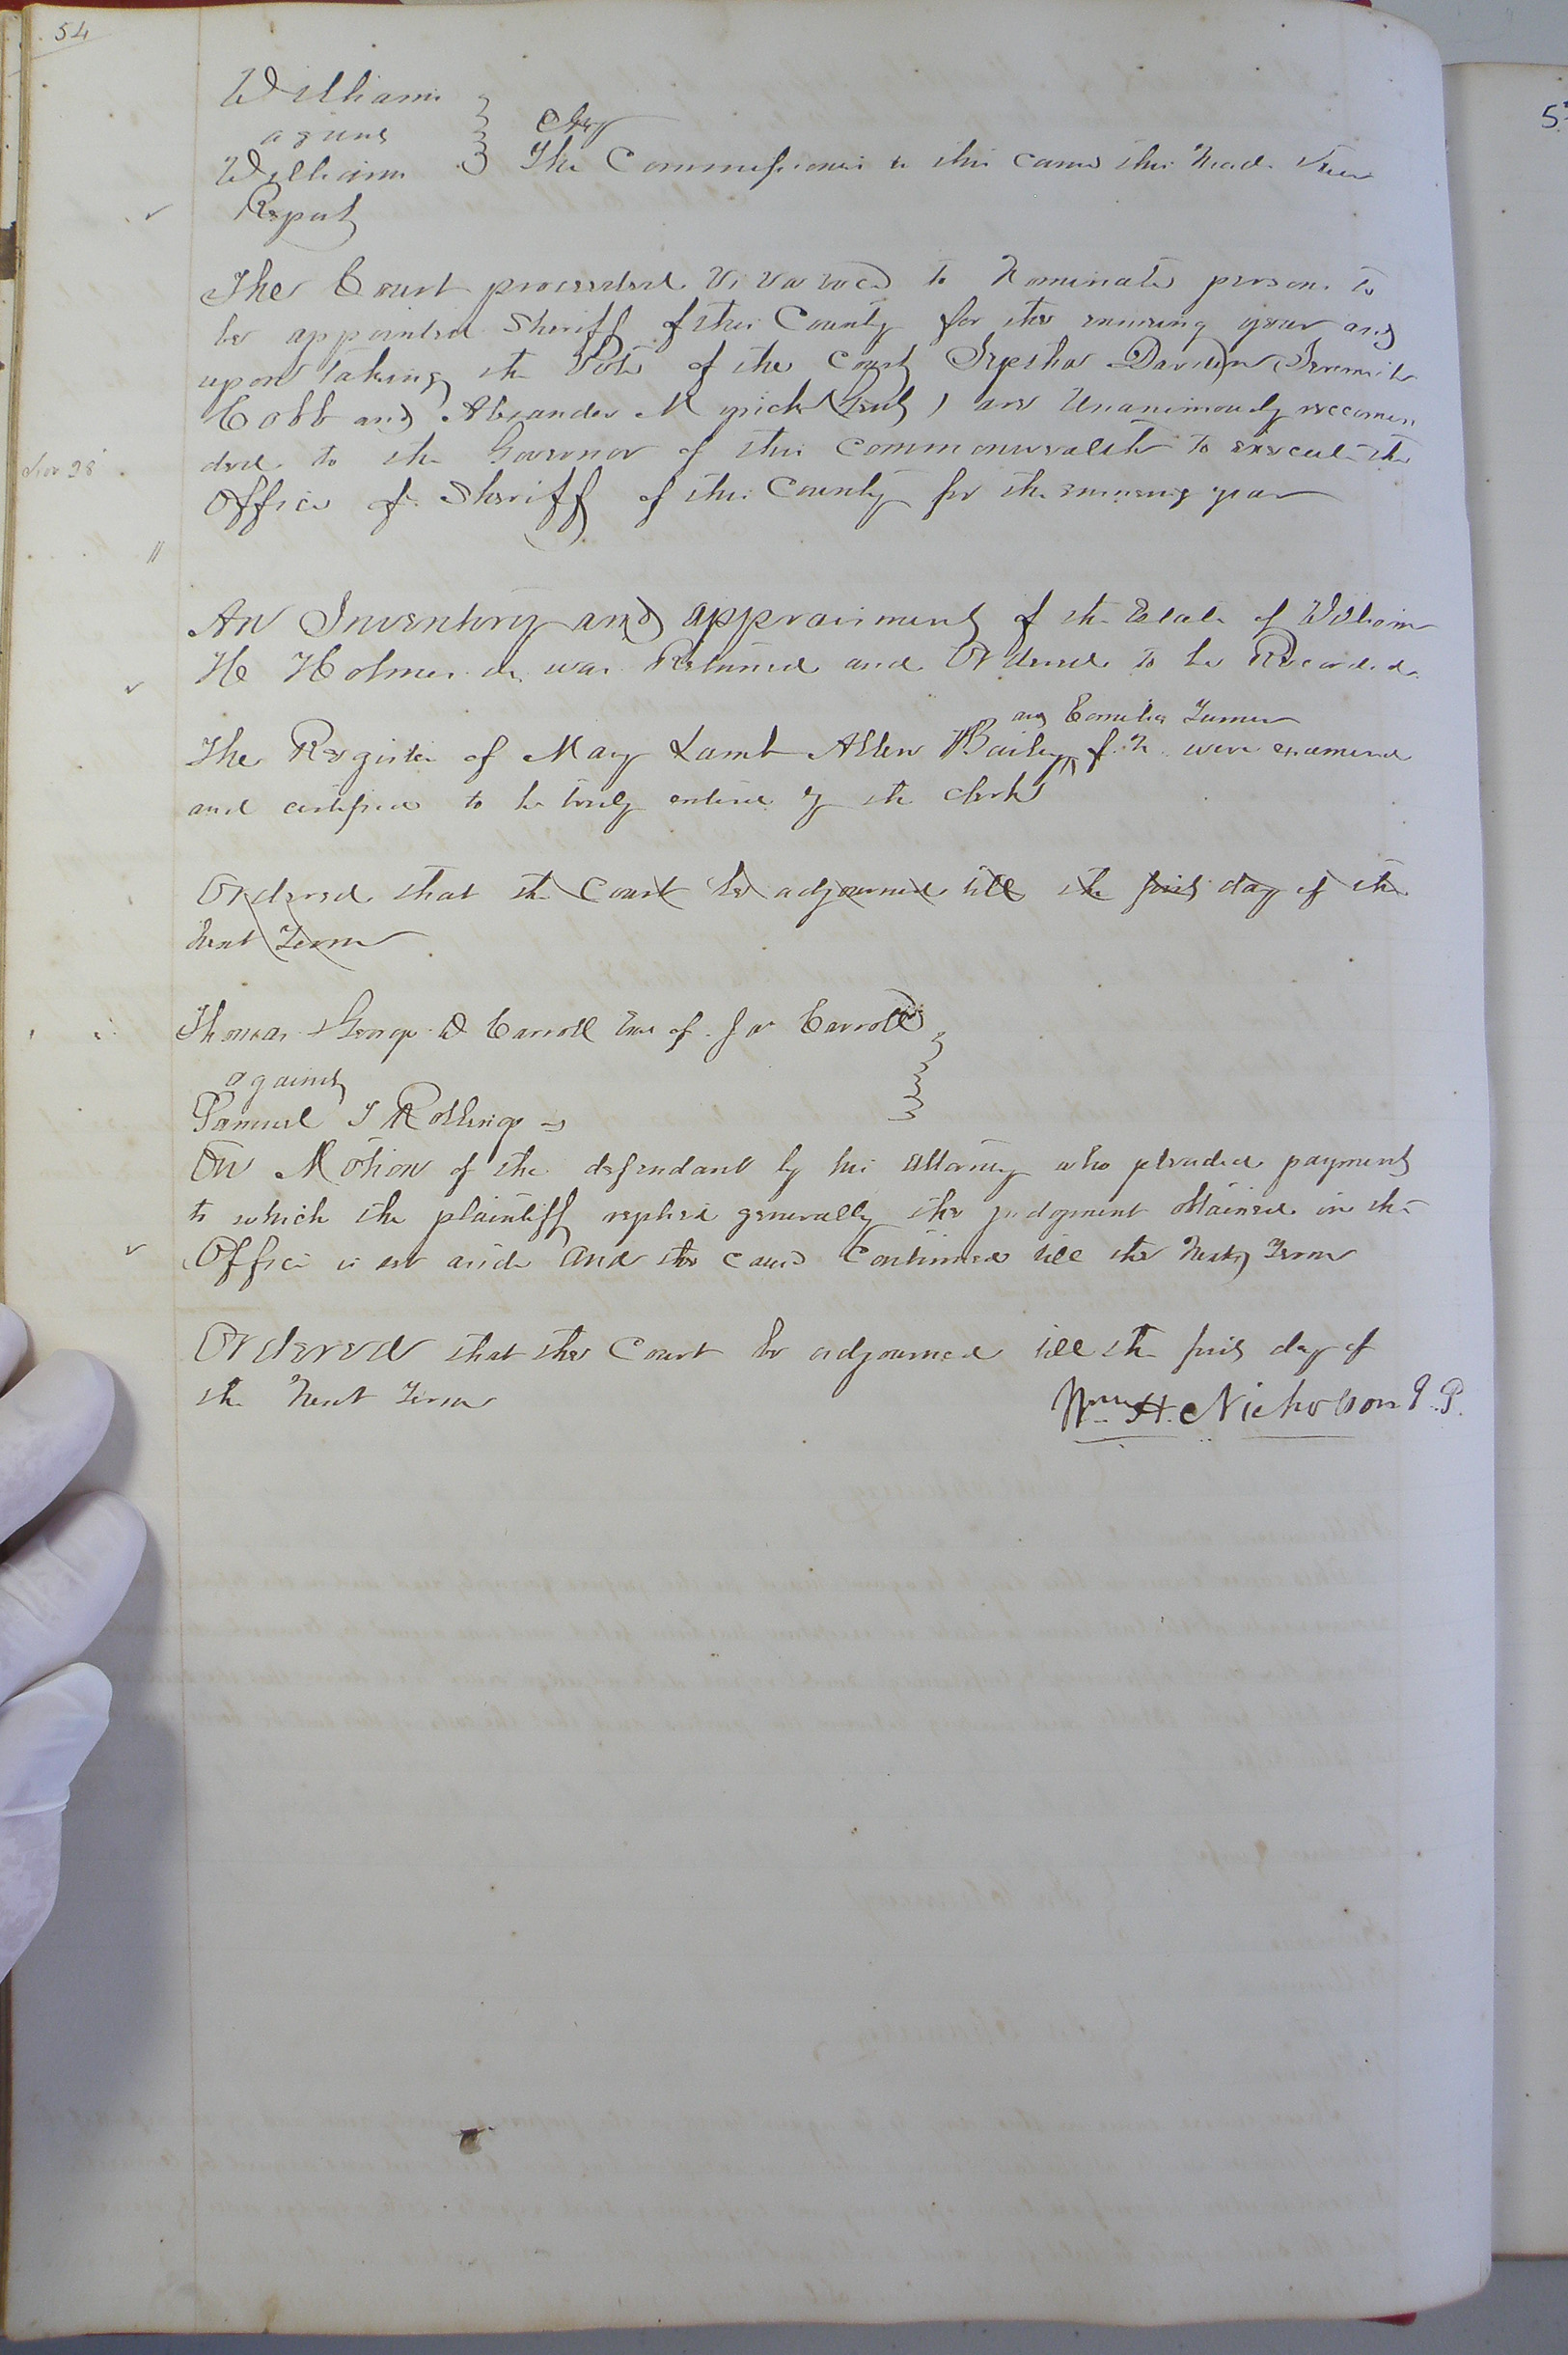 54
Williams
against
Williams } Chy The Commissioners in this cause this made their
Report
The Court proceeded viva voce to Nominate persons to
be appointed Sheriff of this County for the ensuing year and
upon taking the Vote of the Court Davison Jeremiah
Cobb and Alexander Myrick (Gent) are Unanimously recomen
ded to the Governor of this Commonwealth to execute the
Nov 28
Office of Sheriff of this County for the ensuing year
An Inventory and appraisment of the Estate of William
H Holmes de was Returned and Ordered to be Recorded
and Cornelia Turner
The Register of Mary Lamb Allen Bailey f. N. were examined
and certified to be truly entered by the clerk
Ordered that the Court be adjourned till the first day of the
Next Term
Thomas & George D Carroll Exs of Carroll
against
Samuel J Rollings
On Motion of the defendant by his attorney who pleaded payment
to which the plaintiff replied generally the judgment obtained in the
Office is set aside and the cause Continued till the Next Term
Ordered that the Court be adjourned till the first day of
the Next Term
Wm. H. Nicholson J. P.